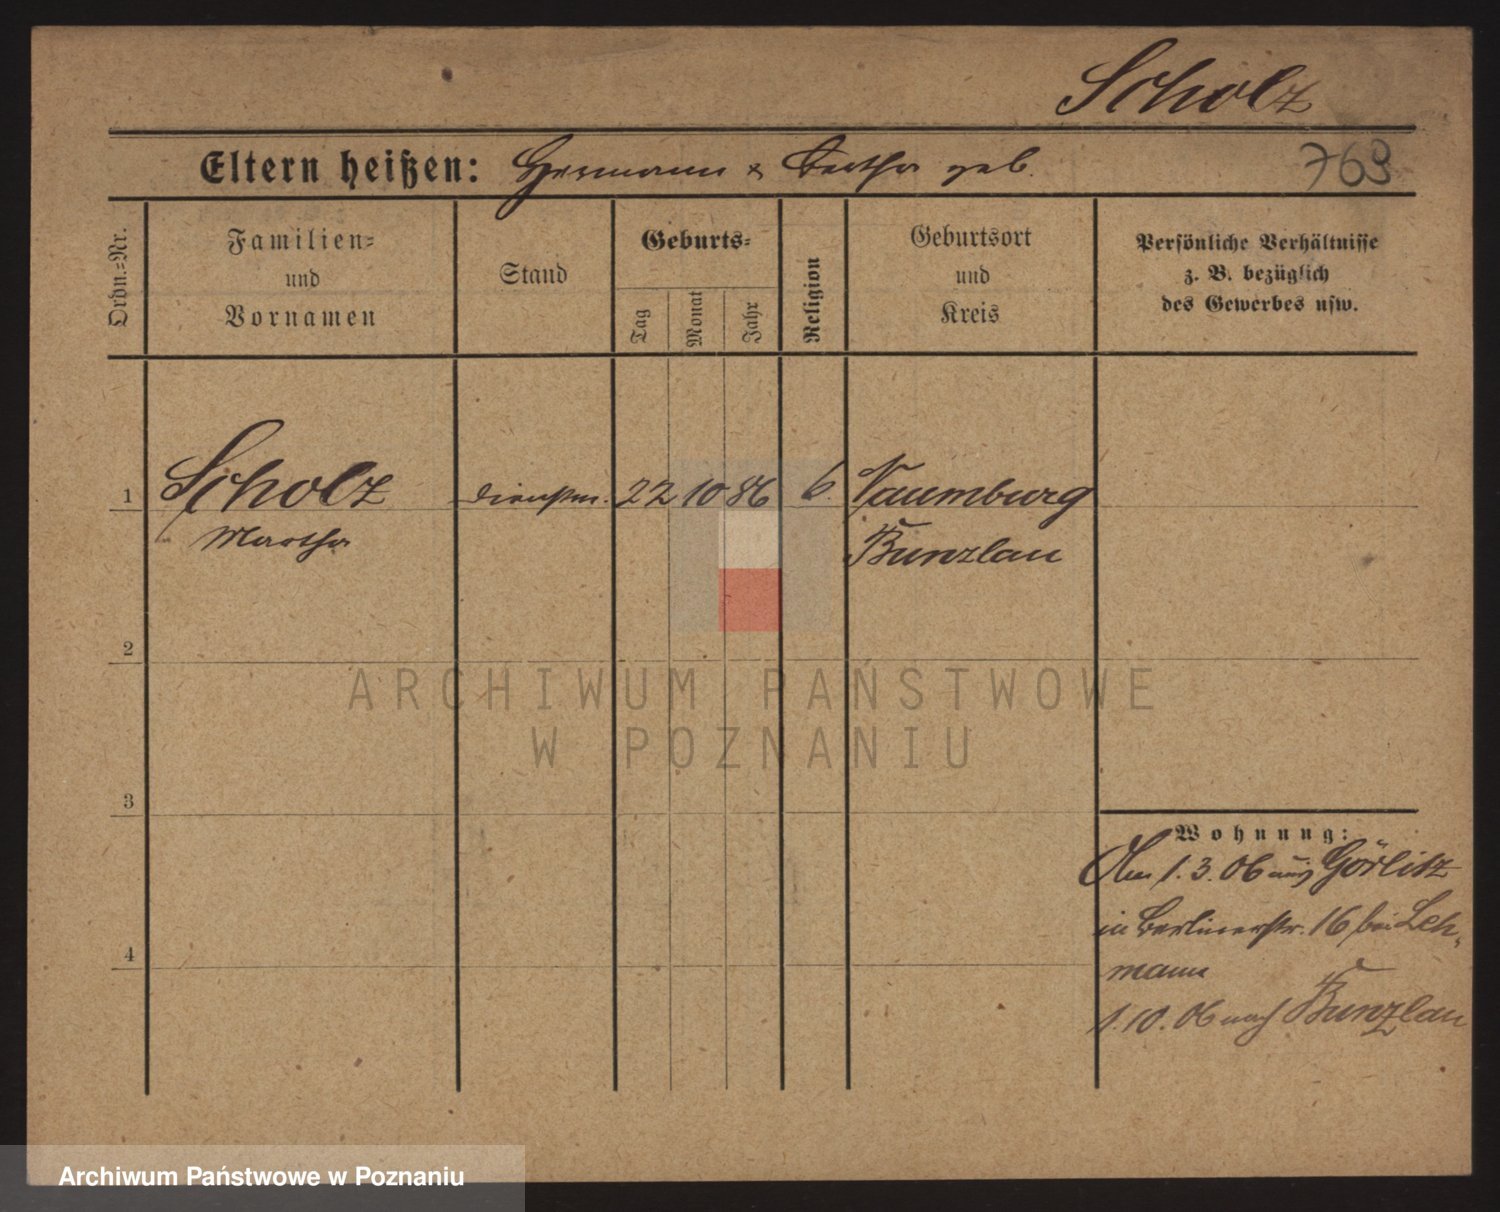 Scholz
Eltern heißen: Hermann & Bertha geb.
769
Ordn.=Nr.
Familien=
und
Vornamen
Stand
Geburts=
Tag
Monat
Jahr
Religion
Geburtsort
und
Kreis
Persönliche Verhältnisse
z. B. bezüglich
des Gewerbes usw.
1 Scholz Dienstm. 22 10 86 Naumburg
Martha Bunzlau
2
3
4
Wohnung:
1.3.06 aus Görlitz
in Berlinerstr. 16 bei Leh-
mann
1.10.06 nach Bunzlau
ARCHIWUM PAŃSTWOWE
W POZNANIU
Archiwum Państwowe w Poznaniu